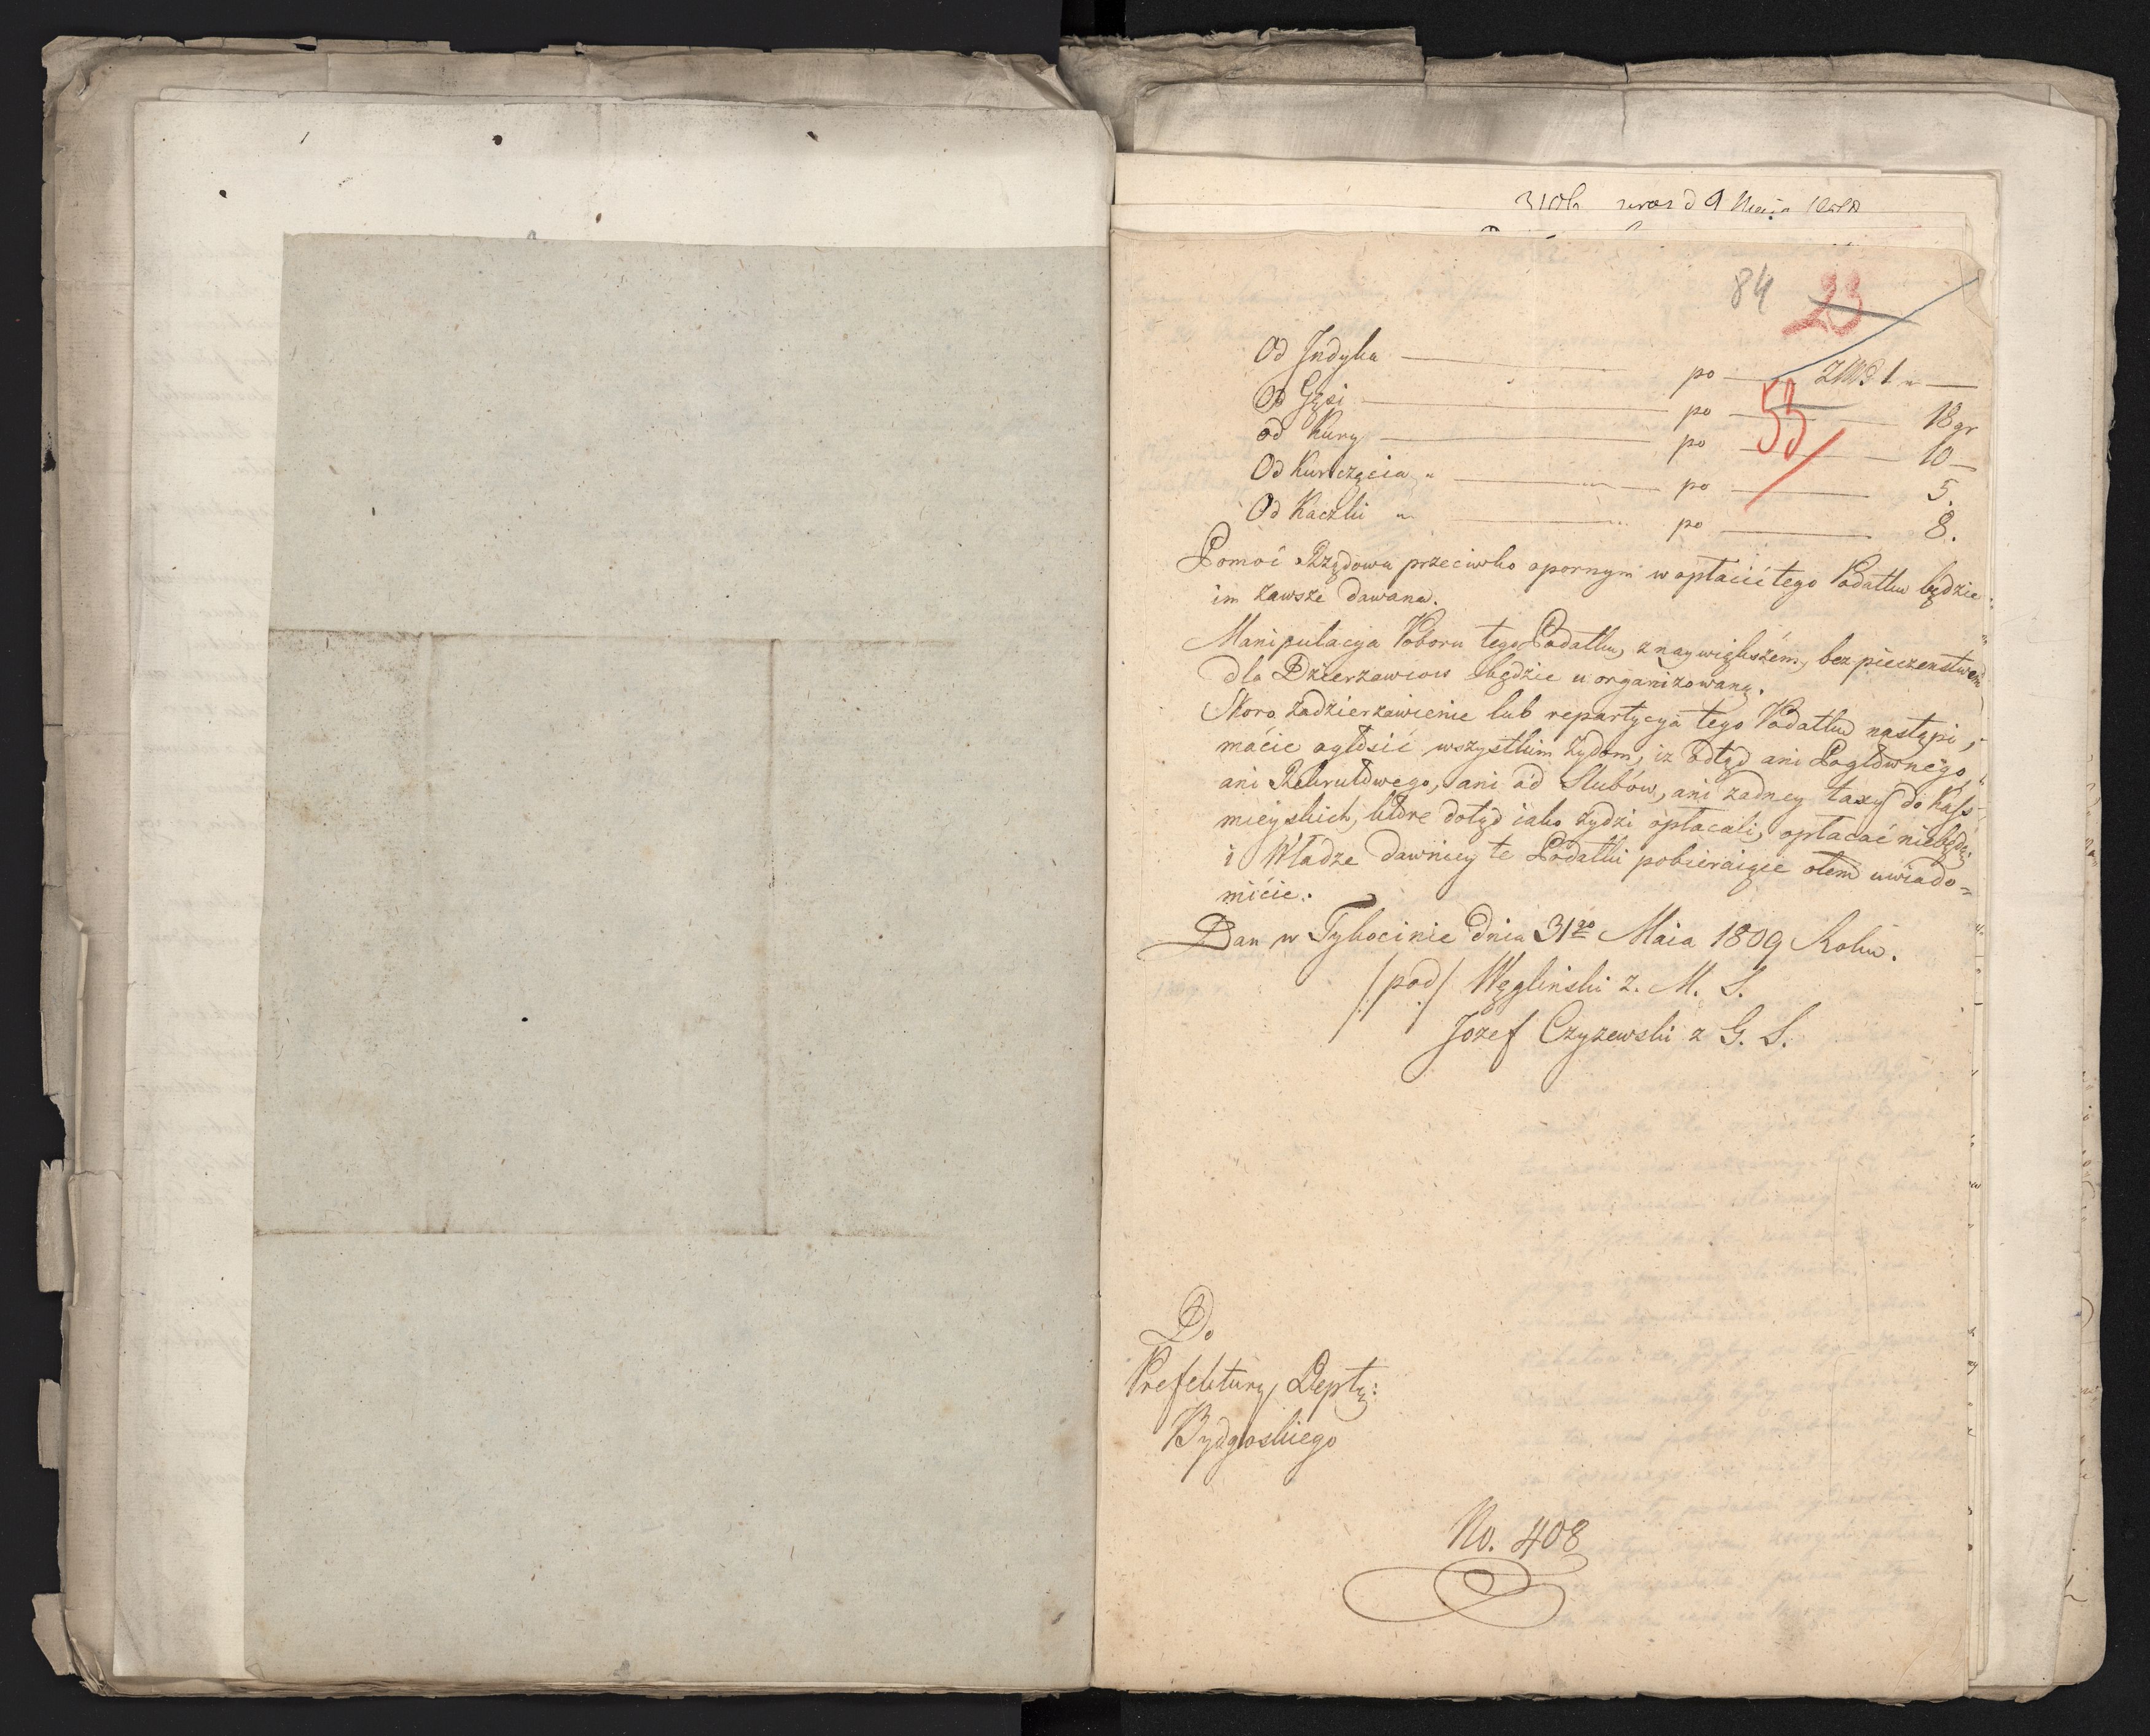 84 23
Od Indyka — po — Złłt 1 „ —
53
Od Gęsi — po — 18 gr
od Kury — po — 10 —
Od Kurczęcia „ — po — 5.
Od Kaczki „ — po — 8.
Pomoc Rządowa przeciwko opornym w opłacie tego Podatku będzie
im zawsze dawana.
Manipulacya Poboru tego Podatku, z naywiększém, bezpieczenstwem
dla Dzierzawcow będzie uorganizowaną.
Skoro zadzierzawienie lub repartycya tego Podatku nastąpi,
macie ogłosić wszystkim Żydom, iz odtąd ani Pogłównego,
ani Rekrutowego, ani od Slubów, ani zadney taxy do Kass
mieyskich, które dotąd iako Żydzi opłacali, opłacać niebędą;
i Władze dawniey te Podatki pobieraiące otem uwiado=
micie.
Dan w Tykocinie dnia 31go Maia 1809 Roku.
/:pod:/ Węgliński Z. M. S.
Jozef Czyzewski z G. S.
Do
Prefektury Deptu:
Bydgoskiego
No. 408